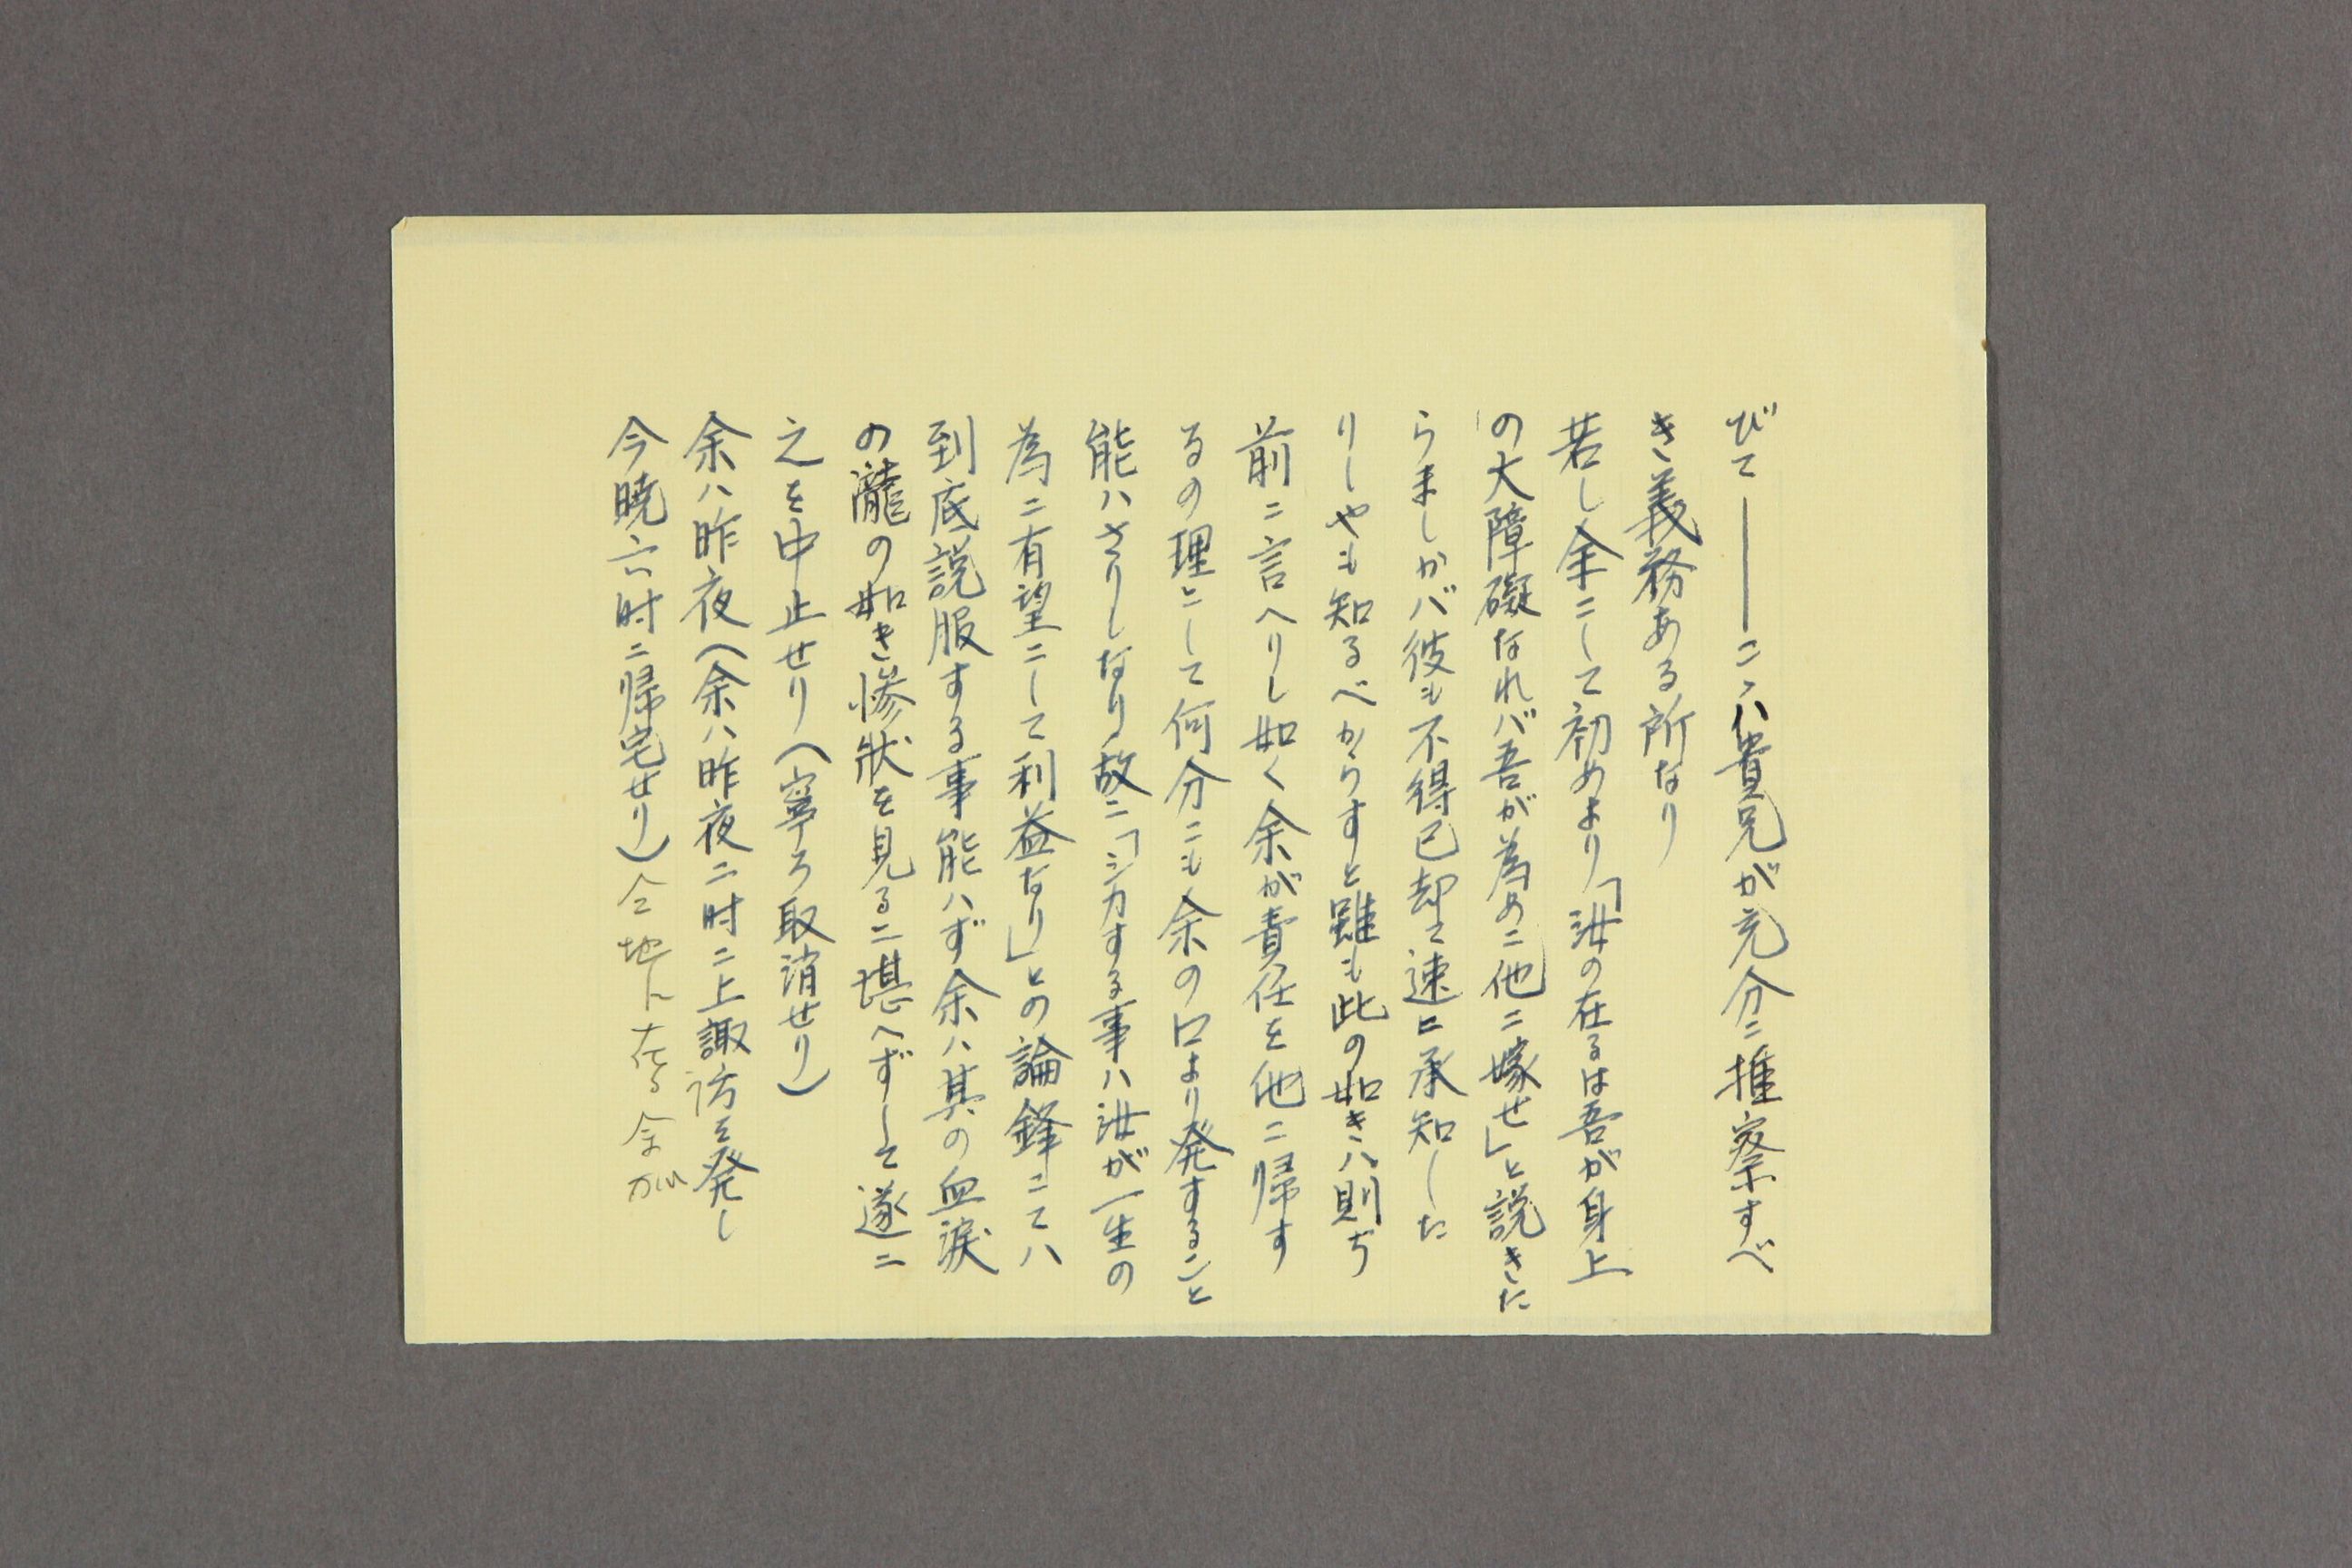 びて――こハ貴兄が充分ニ推察すべ
き義務ある所なり
若し余ニして初めより「汝の在るは吾が身上
の大障礙なれバ吾が為めニ他ニ嫁せ」と説きた
らましかバ彼も不得已却て速に承知した
りしやも知るべからすと雖も此の如きハ則ち
前ニ言へりし如く余が責任を他ニ帰す
るの理ニして何分ニも余の口より発すること
能ハさりしなり故ニ「シカする事ハ汝が一生の
為ニ有望ニして利益なり」との論鋒ニてハ
到底説服する事能ハず余ハ其の血涙
の瀧の如き惨状を見るニ堪へずして遂ニ
之を中止せり（寧ろ取消せり）
余ハ昨夜（余ハ昨夜二时ニ上諏訪を発し
今暁六时ニ帰宅せり）仝地に在る余が